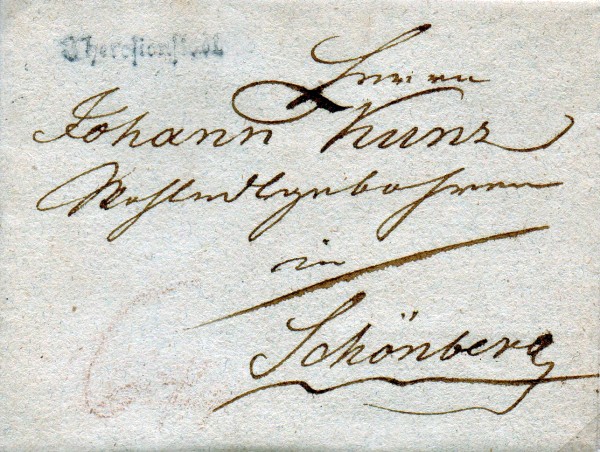 Theresienstadt
Herrn
Johann Kunz
Wohledlgebohren
in
Schönberg